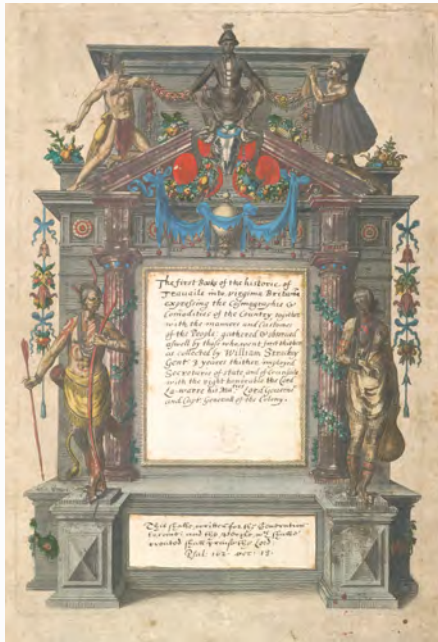 The first Booke of the historie of
Travaile into Virginia Britania
expressing the Cosmographie &
Comodities of the Country togither
with the manners and Customes
of the People: gathered & observed
aswell by those who went first thither
as collected by William Strachy
Gent: 3 yeares thither imployed
Secretarie of State, and of Counsaile
with the right honorable the Lord
La-warre his Maties Lord Governor
and Capt: Generall of the Colony.
This shalbe written for the Generation
to come: and the People wch shalbe
created shall praise the Lord
Psal: 102. ver: 18.